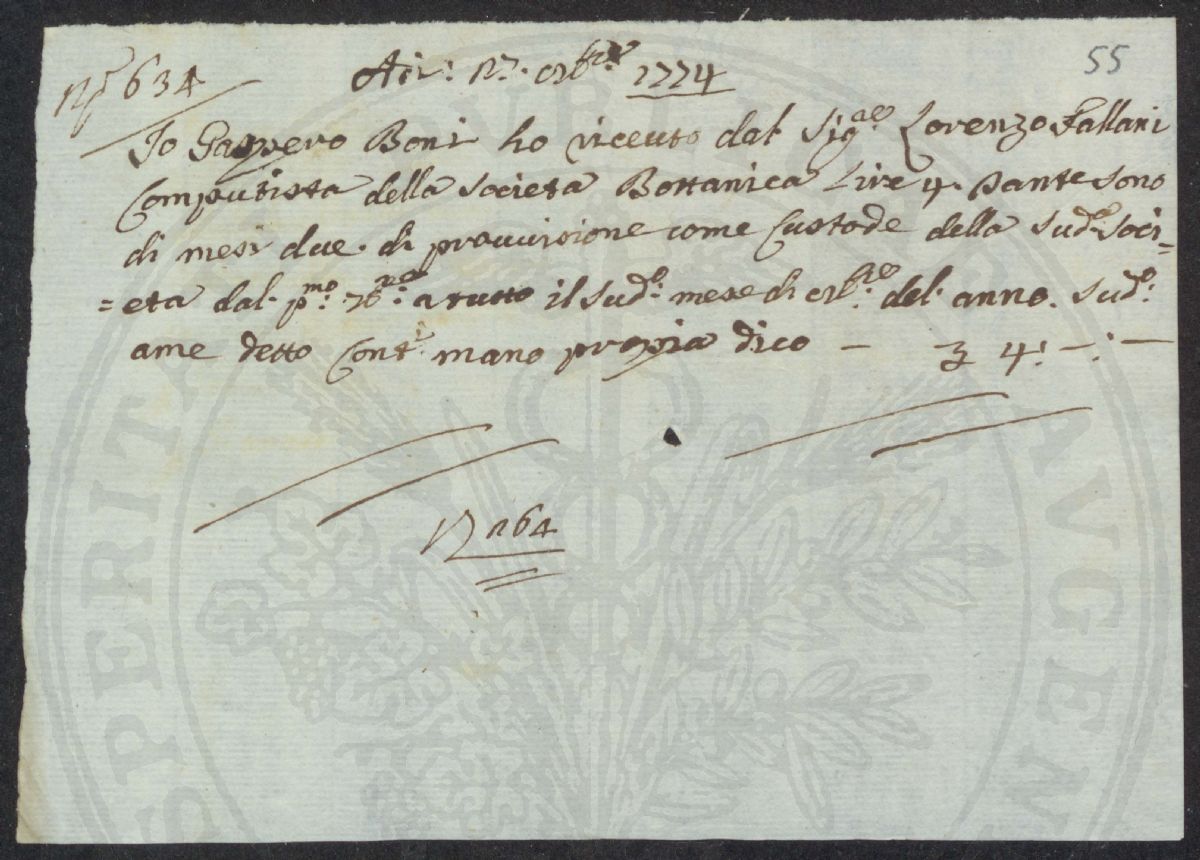 N° 634
Adi: 12. 8bre 1774
55
Io Gaspero Boni ho riceuto dal Sigre Lorenzo Fallani
Computista della Società Bottanica Lire 4. tante sono
di mesi due. di prouuisione come Custode della Sud: Soci=
=eta dal. pmo: 7bre: a tutto il Sud: mese di 8bre: del. anno. Sud:
ame detto Cont: mano propia dico — 4: —:—
N 264
PERITA
PUBLICAE
AVGEN